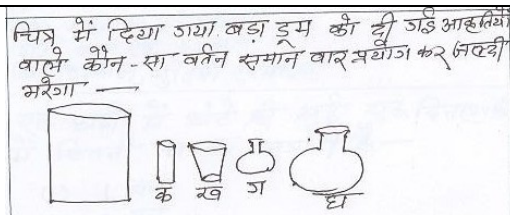 चित्र में दिया गया बड़ा ड्रम को दी गई आकृतियों
वाले कौन-सा बर्तन समान बार प्रयोग कर जल्दी
भरेगा —
क ख ग घ